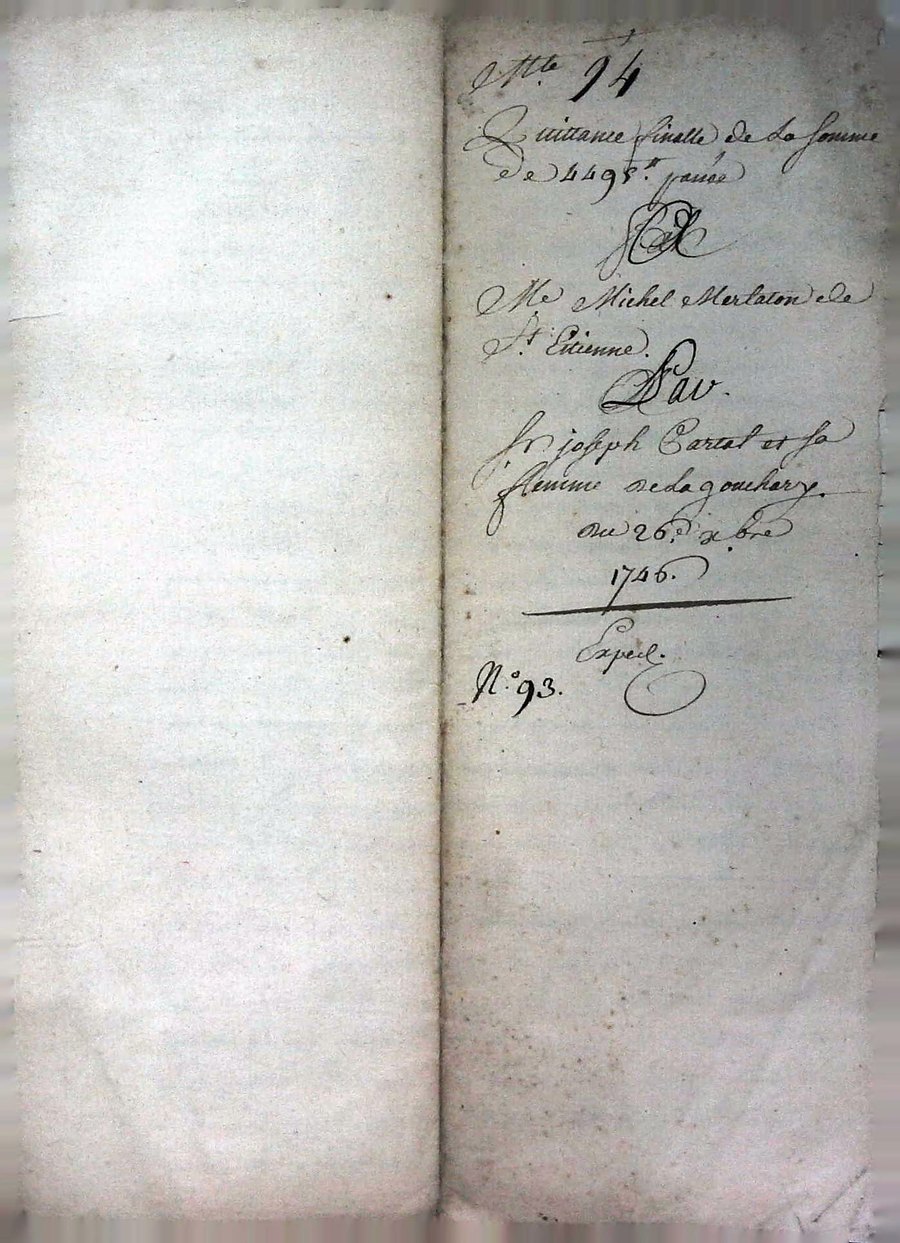 94
Quittance finalle de la somme
de 449 passée
Me Michel Merlaton de
St. Etienne.
Par.
Sr. joseph Cartal et sa
femme de la gouchary.
du 26e xbre
1746.
Exped.
N.° 93.